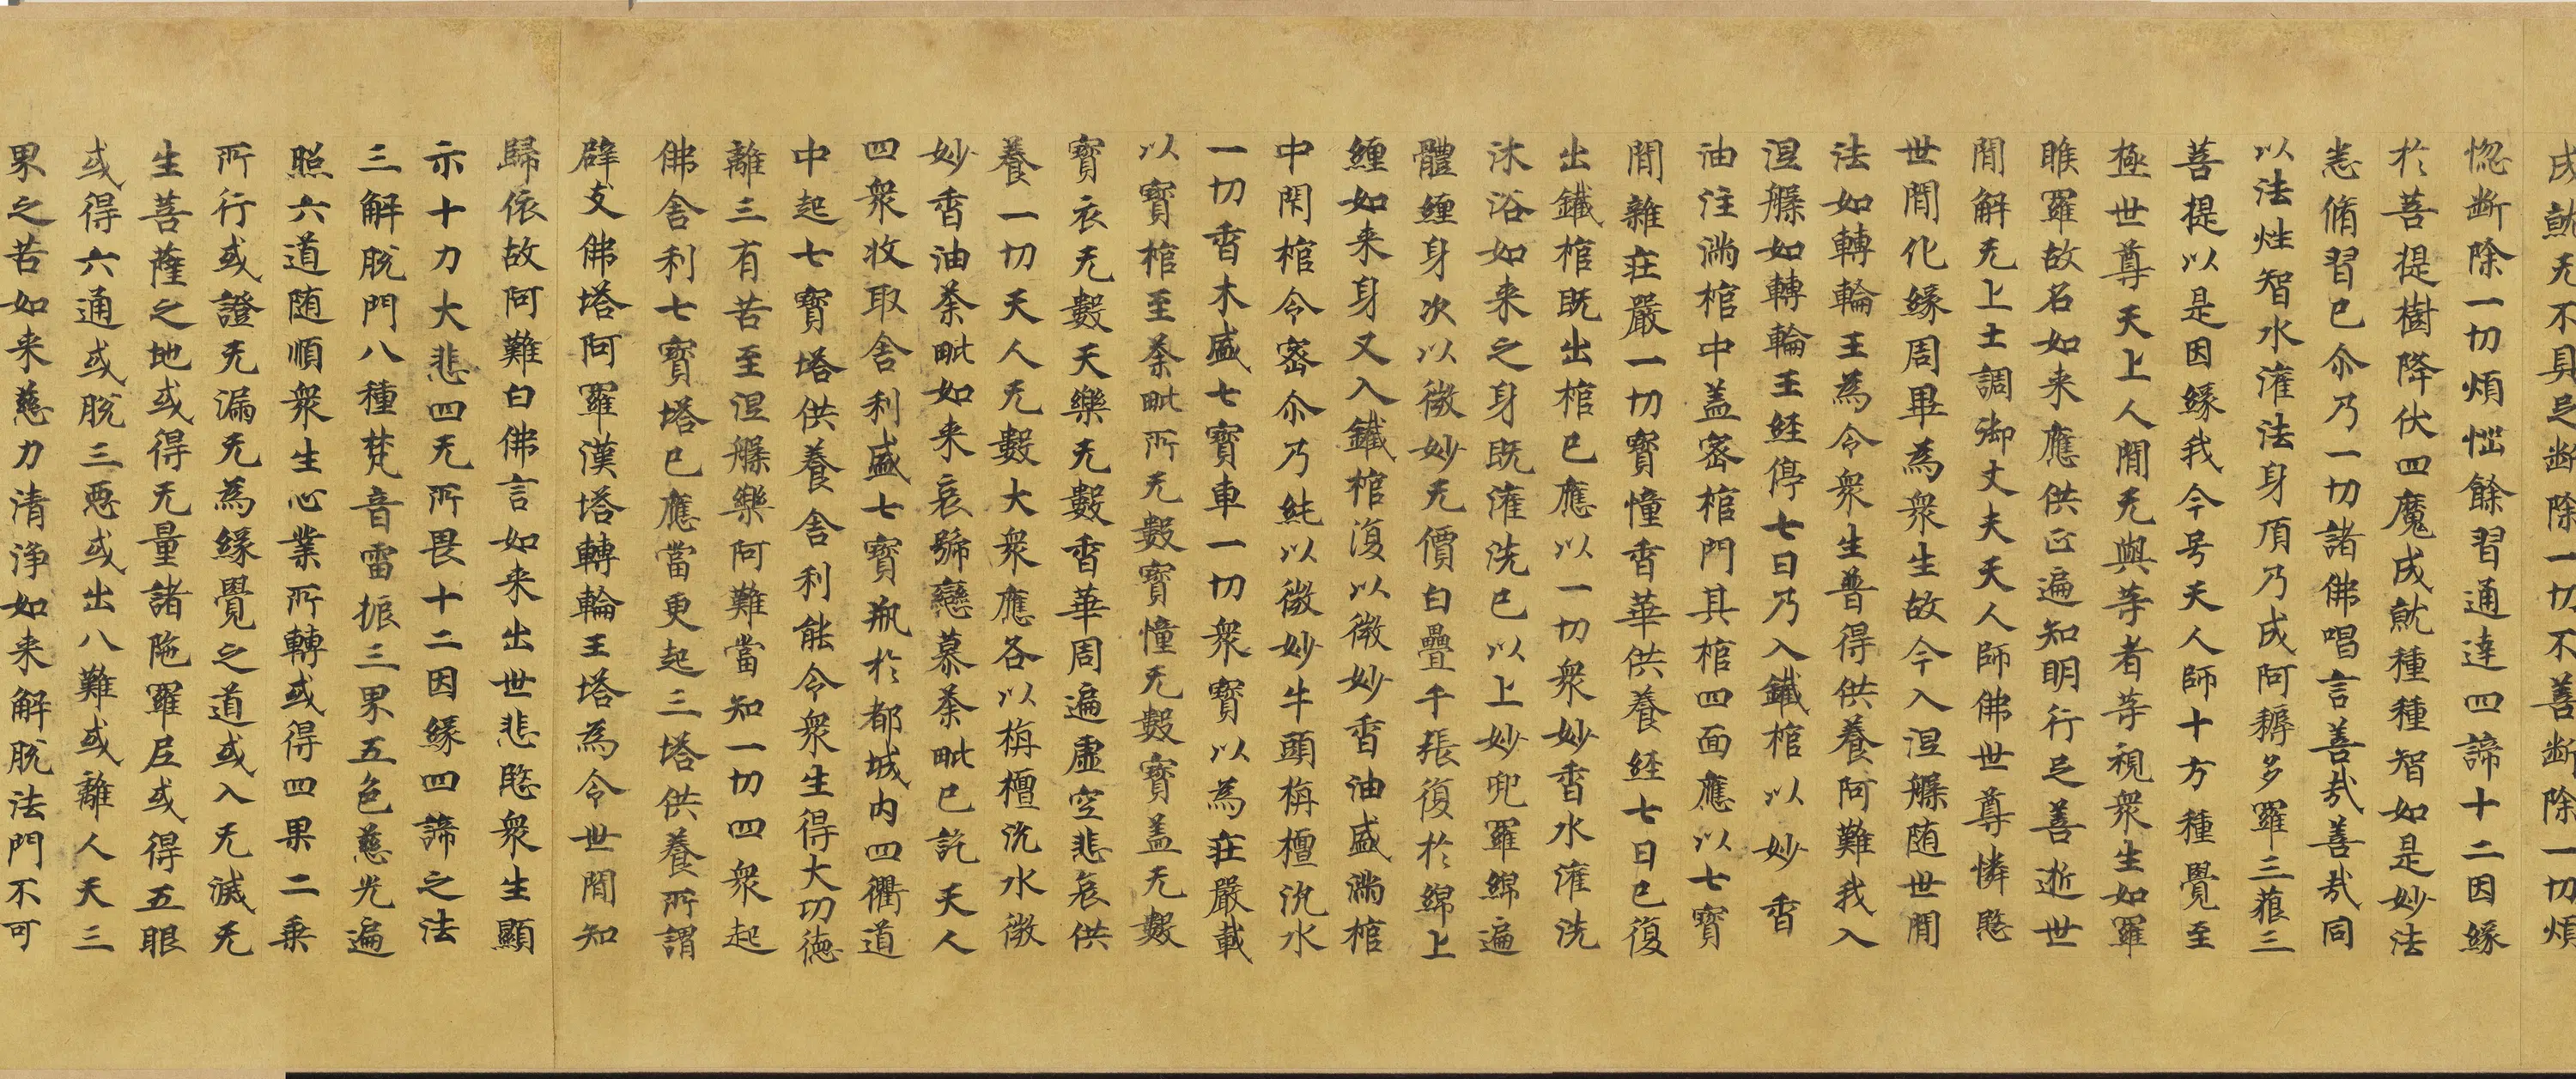 成就无不具足断除一切不善断除一切煩
惚断除一切煩惱餘習通達四諦十二因緣
於菩提樹降伏四魔成就種種智如是妙法
悉脩習已尒乃一切諸佛唱言善哉善哉同
以法性智水灌法身頂乃成阿耨多羅三藐三
菩提以是因緣我今号天人師十方種覺至
極世尊天上人間无與等者等視衆生如羅
睺羅故名如来應供正遍知明行足善逝世
間解无上士調御丈夫天人師佛世尊憐愍
世間化緣周畢為衆生故今入涅槃随世間
法如轉輪王為令衆生普得供養阿難我入
涅槃如轉輪王経停七日乃入鐵棺以妙香
油注滿棺中盖密棺門其棺四面應以七寶
間雜莊嚴一切寶幢香華供養経七日已復
出鐵棺既出棺已應以一切衆妙香水灌洗
沐浴如来之身既灌洗已以上妙兜羅綿遍
體纏身次以微妙无價白疊千張復於綿上
纏如来身又入鐵棺復以微妙香油盛滿棺
中閇棺令密尒乃純以微妙牛頭栴檀沉水
一切香木盛七寶車一切衆寶以為莊嚴載
以寶棺至荼毗所无數寶幢无數寶盖无數
寶衣无數天樂无數香華周遍虛空悲哀供
養一切天人无數大衆應各以栴檀沉水微
妙香油荼毗如来哀號戀慕荼毗已訖天人
四衆收取舍利盛七寶瓶於都城内四衢道
中起七寶塔供養舍利能令衆生得大功德
離三有苦至涅槃樂阿難當知一切四衆起
佛舍利七寶塔已應當更起三塔供養所謂
辟支佛塔阿羅漢塔轉輪王塔為令世間知
歸依故阿難白佛言如来出世悲愍衆生顯
示十力大悲四无所畏十二因緣四諦之法
三解脱門八種梵音雷振三界五色慈光遍
照六道随順衆生心業所轉或得四果二乗
所行或證无漏无為緣覺之道或入无滅无
生菩薩之地或得无量諸陁羅尼或得五眼
或得六通或脱三惡或出八難或離人天三
界之苦如来慈力清浄如来解脱法門不可